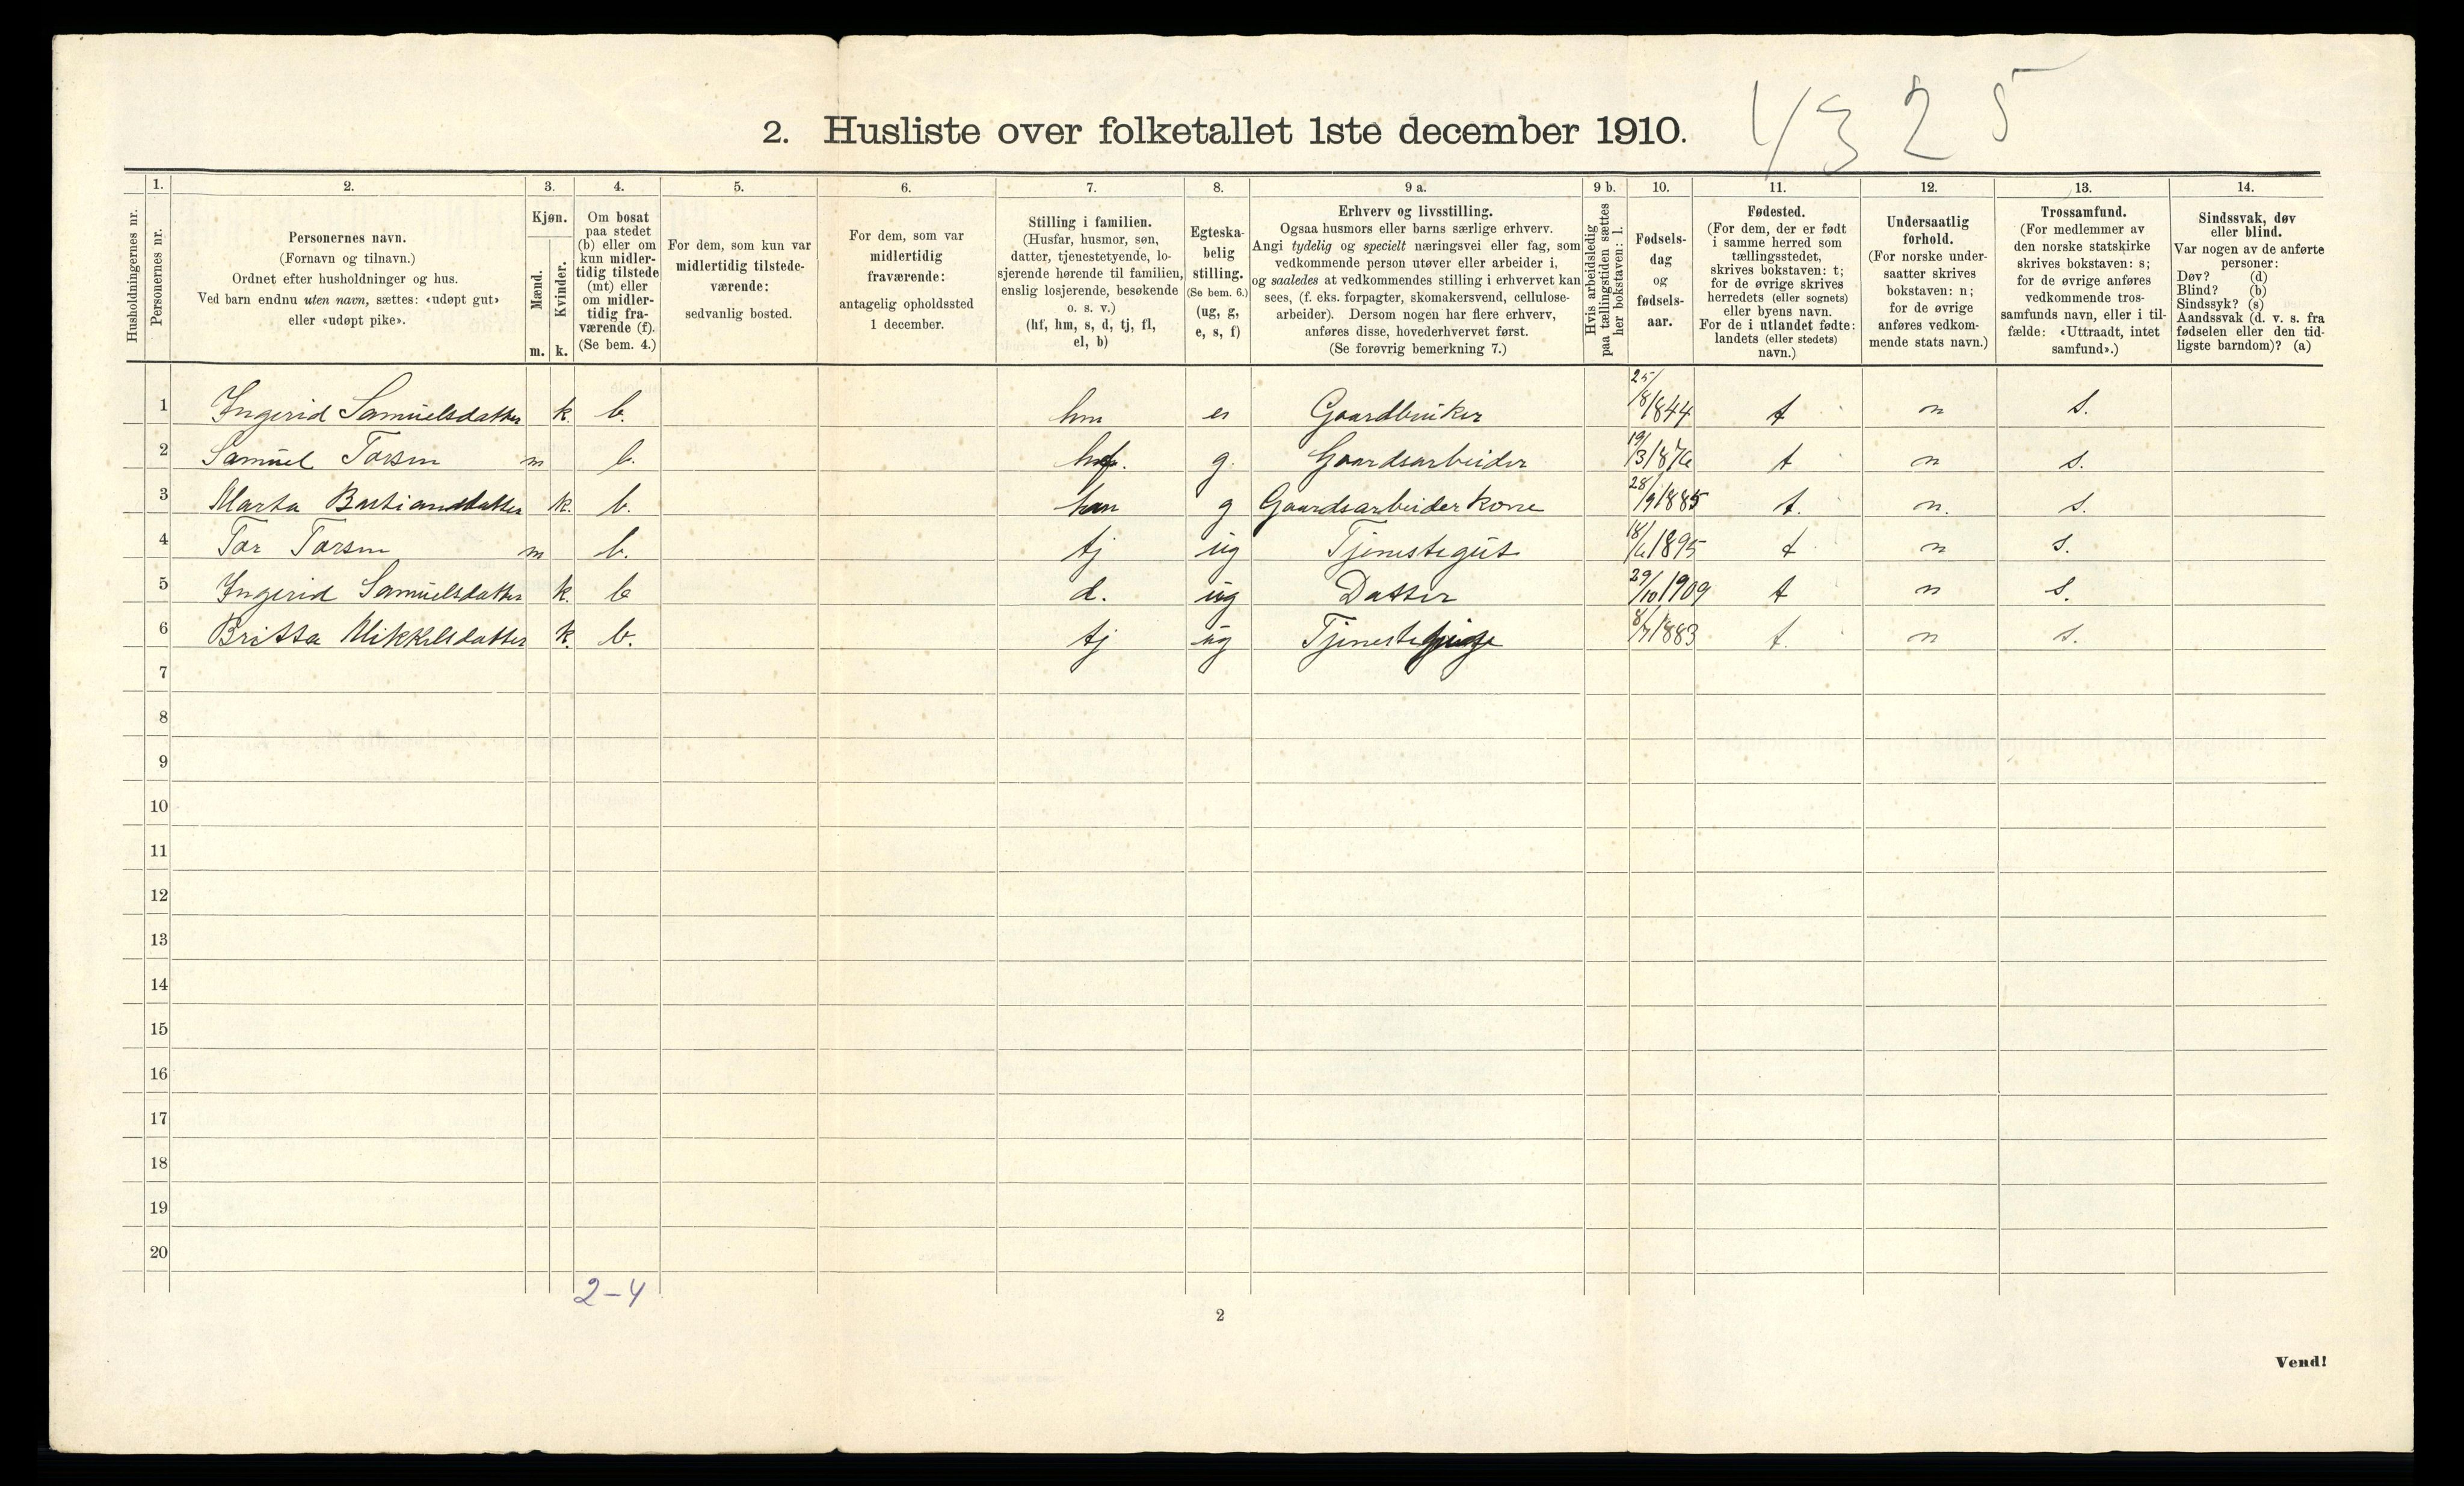 4 3 2 5
2. Husliste over folketallet 1ste december 1910.
1. 2. 3. 4. 5. 6. 7. 8. 9 a. 9 b. 10. 11. 12. 13. 14.
Husholdningernes nr.
Personernes nr.
Personernes navn.
(Fornavn og tilnavn.)
Ordnet efter husholdninger og hus.
Ved barn endnu uten navn, sættes: «udøpt gut»
eller «udøpt pike».
Kjøn.
Mænd.
Kvinder.
m. k.
Om bosat
paa stedet
(b) eller om
kun midler-
tidig tilstede
(mt) eller
om midler-
tidig fra-
værende (f).
(Se bem. 4.)
For dem, som kun var
midlertidig tilstede-
værende:
sedvanlig bosted.
For dem, som var
midlertidig
fraværende:
antagelig opholdssted
1 december.
Stilling i familien.
(Husfar, husmor, søn,
datter, tjenestetyende, lo-
sjerende hørende til familien,
enslig losjerende, besøkende
o. s. v.)
(hf, hm, s, d, tj, fl,
el, b)
Egteska-
belig
stilling.
(Se bem. 6.)
(ug, g,
e, s, f)
Erhverv og livsstilling.
Ogsaa husmors eller barns særlige erhverv.
Angi tydelig og specielt næringsvei eller fag, som
vedkommende person utøver eller arbeider i,
og saaledes at vedkommendes stilling i erhvervet kan
sees, (f. eks. forpagter, skomakersvend, cellulose-
arbeider). Dersom nogen har flere erhverv,
anføres disse, hovederhvervet først.
(Se forøvrig bemerkning 7.)
Hvis arbeidsledig
paa tællingstiden sættes
her bokstaven: l.
Fødsels-
dag
og
fødsels-
aar.
Fødested.
(For dem, der er født
i samme herred som
tællingsstedet,
skrives bokstaven: t;
for de øvrige skrives
herredets (eller sognets)
eller byens navn.
For de i utlandet fødte:
landets (eller stedets)
navn.)
Undersaatlig
forhold.
(For norske under-
saatter skrives
bokstaven: n;
for de øvrige
anføres vedkom-
mende stats navn.)
Trossamfund.
(For medlemmer av
den norske statskirke
skrives bokstaven: s;
for de øvrige anføres
vedkommende tros-
samfunds navn, eller i til-
fælde: «Uttraadt, intet
samfund».)
Sindssvak, døv
eller blind.
Var nogen av de anførte
personer:
Døv? (d)
Blind? (b)
Sindssyk? (s)
Aandssvak (d. v. s. fra
fødselen eller den tid-
ligste barndom)? (a)
1 Ingerid Samuelsdatter k. b. hm e Gaardbruker 25/8 1844 t n s.
2 Samuel Torsen m b. hf. g. Gaardsarbeider 19/3 1876 t n s.
3 Marta Bastiansdatter k. b. hm g Gaardsarbeider kone 28/9 1885 t. n. s.
4 Tor Torsen m b. tj ug Tjenestegut 1895 t n s.
5 Ingerid Samuelsdatter k. b d. ug Datter 29/10 1909 t n s.
6 Britta Mikkelsdatter k. b. tj ug 8/7 1883 t. n s.
7
8
9
10
11
12
13
14
15
16
17
18
19
20
2-4
2
Vend!